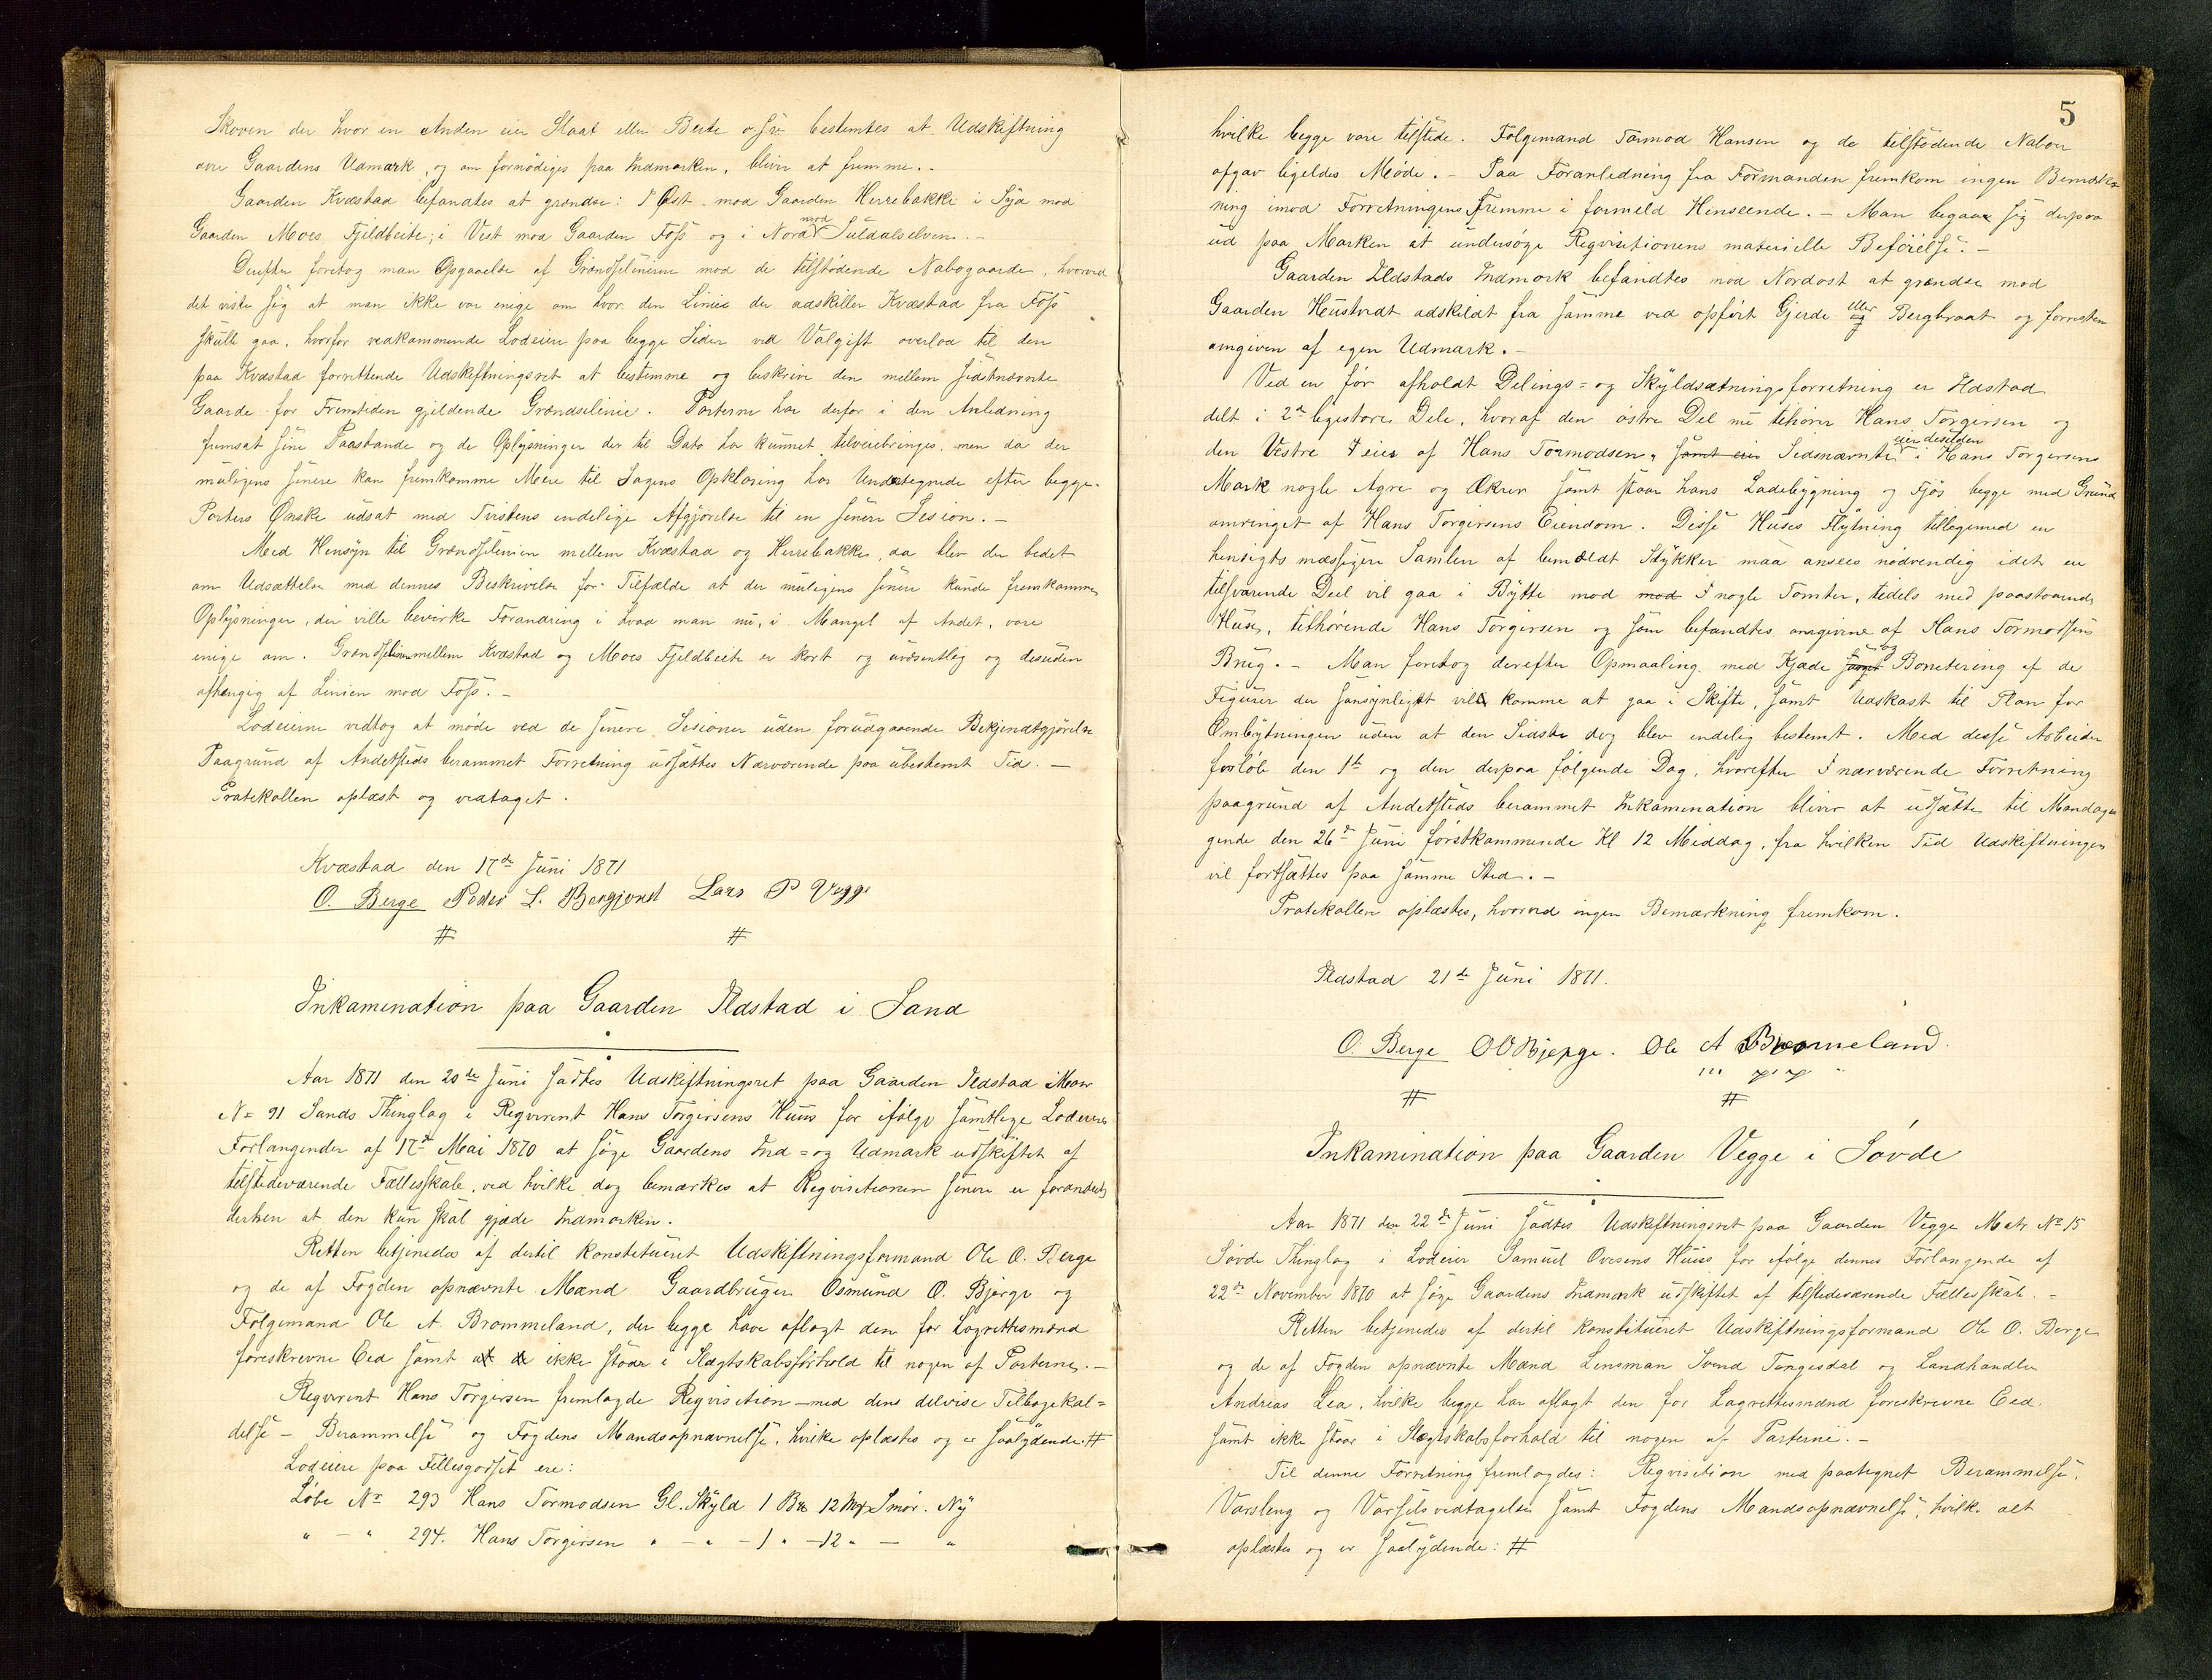 Skoven der hvor en Anden eier Slaat eller Beite og saa bestemtes at Udskiftning
over Gaardens Udmark, og om fornödiges paa Indmarken, bliver at fremme. -
Gaarden Kvæstad befandtes at grændse: I Øst mod Gaarden Herrebakke i Syd mod
Gaarden Moes Fjeldbeite; i Vest mod Gaarden Foss og i Nord mod Suldalselven. -
Derefter foretog man Opgaaelse af Grændselinierne mod de tilstödende Nabogaarde, hvorved
det viste sig at man ikke var enige om hvor den Linie der adskiller Kvæstad fra Foss
skulle gaa, hvorfor vedkommende Lodeiere paa begge Sider ved Valgift overlod til den
paa Kvæstad forrettende Udskiftningsret at bestemme og beskrive den mellem sidstnævnte
Gaarde for Fremtiden gjeldende Grændselinie. Parterne har derfor i den Anledning
fremsat sine Paastande og de Oplysninger der til Dato har kunnet tilveiebringes men da der
muligens senere kan fremkomme Mere til Sagens Opklaring har Undertegnede efter begge
Parters Ønske udsat med Tvistens endelige Afgjörelse til en senere Session. -
Med Hensyn til Grændselinien mellem Kvæstad og Herrebakke, da blev der bedet
om Udsættelse med dennes Beskrivelse for Tilfælde at der muligens senere kunde fremkomme
Oplysninger, der ville bevirke Forandring i hvad man nu, i Mangel af Andet, vare
enige om. Grændselinien mellem Kvæstad og Moes Fjeldbeite er kort og uvæsentlig og desuden
afhængig af Linien mod Foss. -
Lodeierne vedtog at möde ved de senere Sessioner uden forudgaaende Bekjendtgjörelse
Paagrund af Andetsteds berammet Forretning udsættes Nærværende paa ubestemt Tid. -
Protokollen oplæst og vedtaget.
Kvæstad den 17de Juni 1871
O. Berge Peder L. Bergjord Lars P Vegge
# #
Inkamination paa Gaarden Ildstad i Sand
Aar 1871 den 20de Juni sattes Udskiftningsret paa Gaarden Ildstad Matr
No 91 Sands Thinglag i Reqvirent Hans Torgersens Huus for ifölge samtlige Lodeieres
Forlangender af 17de Mai 1870 at söge Gaardens Ind = og Udmark udskiftet af
tilstedeværende Fællesskab, ved hvilke dog bemærkes at Reqvisitionen senere er forandret
derhen at den kun skal gjælde Indmarken.
Retten betjenedes af dertil konstitueret Udskiftningsformand Ole O. Berge
og de af Fogden opnævnte Mænd Gaardbruger Osmund O. Bjerge og
Fölgemand Ole A. Brommeland, der begge have aflagt den for Lagrettesmænd
foreskrevne Eed samt at de ikke staar i Slægtskabsforhold til nogen af Parterne. -
Reqvirent Hans Torgersen fremlagde Reqvisition - med dens delvise Tilbagekal=
delse - Berammelse og Fogdens Mandsopnævnelse, hvilke oplæstes og er saalydende: #
Lodeiere paa Fellesgodset ere:
Löbe Nr 293 Hans Tormodsen Gl. Skyld 1 Bx 12 Mrk Smör. Ny
" - " 294. Hans Torgersen " - " - 1 " - 12 " - "
5
hvilke begge vare tilstede. Fölgemand Tormod Hansen og de tilstödende Naboer
afgav ligeldes Möde. - Paa Foranledning fra Formanden fremkom ingen Bemærk
ning imod Forretningens Fremme i formeld Henseende. - Man begav sig derpaa
ud paa Marken at undersöge Reqvisitionens materielle Beföielse. -
Gaarden Ildstads Indmark befandtes mod Nordost at grændse mod
Gaarden Heustvedt adskildt fra samme ved opfört Gjerde eller Bergbraat og forresten
omgiven af egen Udmark. -
Ved en för afholdt Delings = og Skyldsætningsforretning er Ildstad
delt i 2de ligestore Dele, hvoraf den östre Del nu tilhörer Hans Torgersen og
den Vestre I eies af Hans Tormodsen, samt eier Sidsnævnte eier desuden i Hans Torgersens
Mark nogle Agre og Ækrer samt staar hans Ladebygning og Fjös begge med Grund
omringet af Hans Torgersens Eiendom. Disse Huses Flytning tillegemed en
hensigtsmæssigere Samlen af bemældt Stykker maa ansees nödvendig idet en
tilsvarende Deel vil gaa i Bytte mod mod I nogle Tomter, tildels med paastaaende
Huse, tilhörende Hans Torgersen og som befandtes omgivne af Hans Tormodsens
Brug. - Man foretog derefter Opmaaling med Kjæde samt og Bonitering af de
Figurer der sansynligst vil komme at gaa i Skifte, samt Udkast til Plan for
Ombytningen uden at den Sidste dog blev endelig bestemt. Med disse Arbeider
forlöb den 1ste og den derpaa fölgende Dag, hvorefter I nærværende Forretning
paagrund af Andetsteds berammet Inkamination bliver at udsætte til Mandagen
gende den 26de Juni förstkommende Kl 12 Middag, fra hvilken Tid Udskiftningen
vil fortsættes paa samme Sted. -
Protokollen oplæstes, hvorved ingen Bemærkning fremkom.
Ildstad 21de Juni 1871.
O. Berge OO Bjerge. Ole A Brommeland.
# #
Inkamination paa Gaarden Vegge i Sövde
Aar 1871 den 22de Juni sadtes Udskiftningsret paa Gaarden Vegge Matr No 15
Sövde Thinglag i Lodeier Samuel Ovesens Huus for ifölge dennes Forlangende af
22de November 1870 at söge Gaardens Indmark udskiftet af tilstedeværende Fællesskab. -
Retten betjenedes af dertil konstitueret Udskiftningsformand Ole O. Berge
og de af Fogden opnævnte Mænd Lensman Svend Tengesdal og Landhandler
Andreas Lea, hvilke begge har aflagt den for Lagrettesmænd foreskrevne Eed
samt ikke staar i Slægtskabsforhold til nogen af Parterne. -
Til denne Forretning fremlagdes: Reqvisition med paategnet Berammelse,
Varsling og Varselsvedtagelse samt Fogdens Mandsopnævnelse, hvilke alt
oplæstes og er saalydende: #